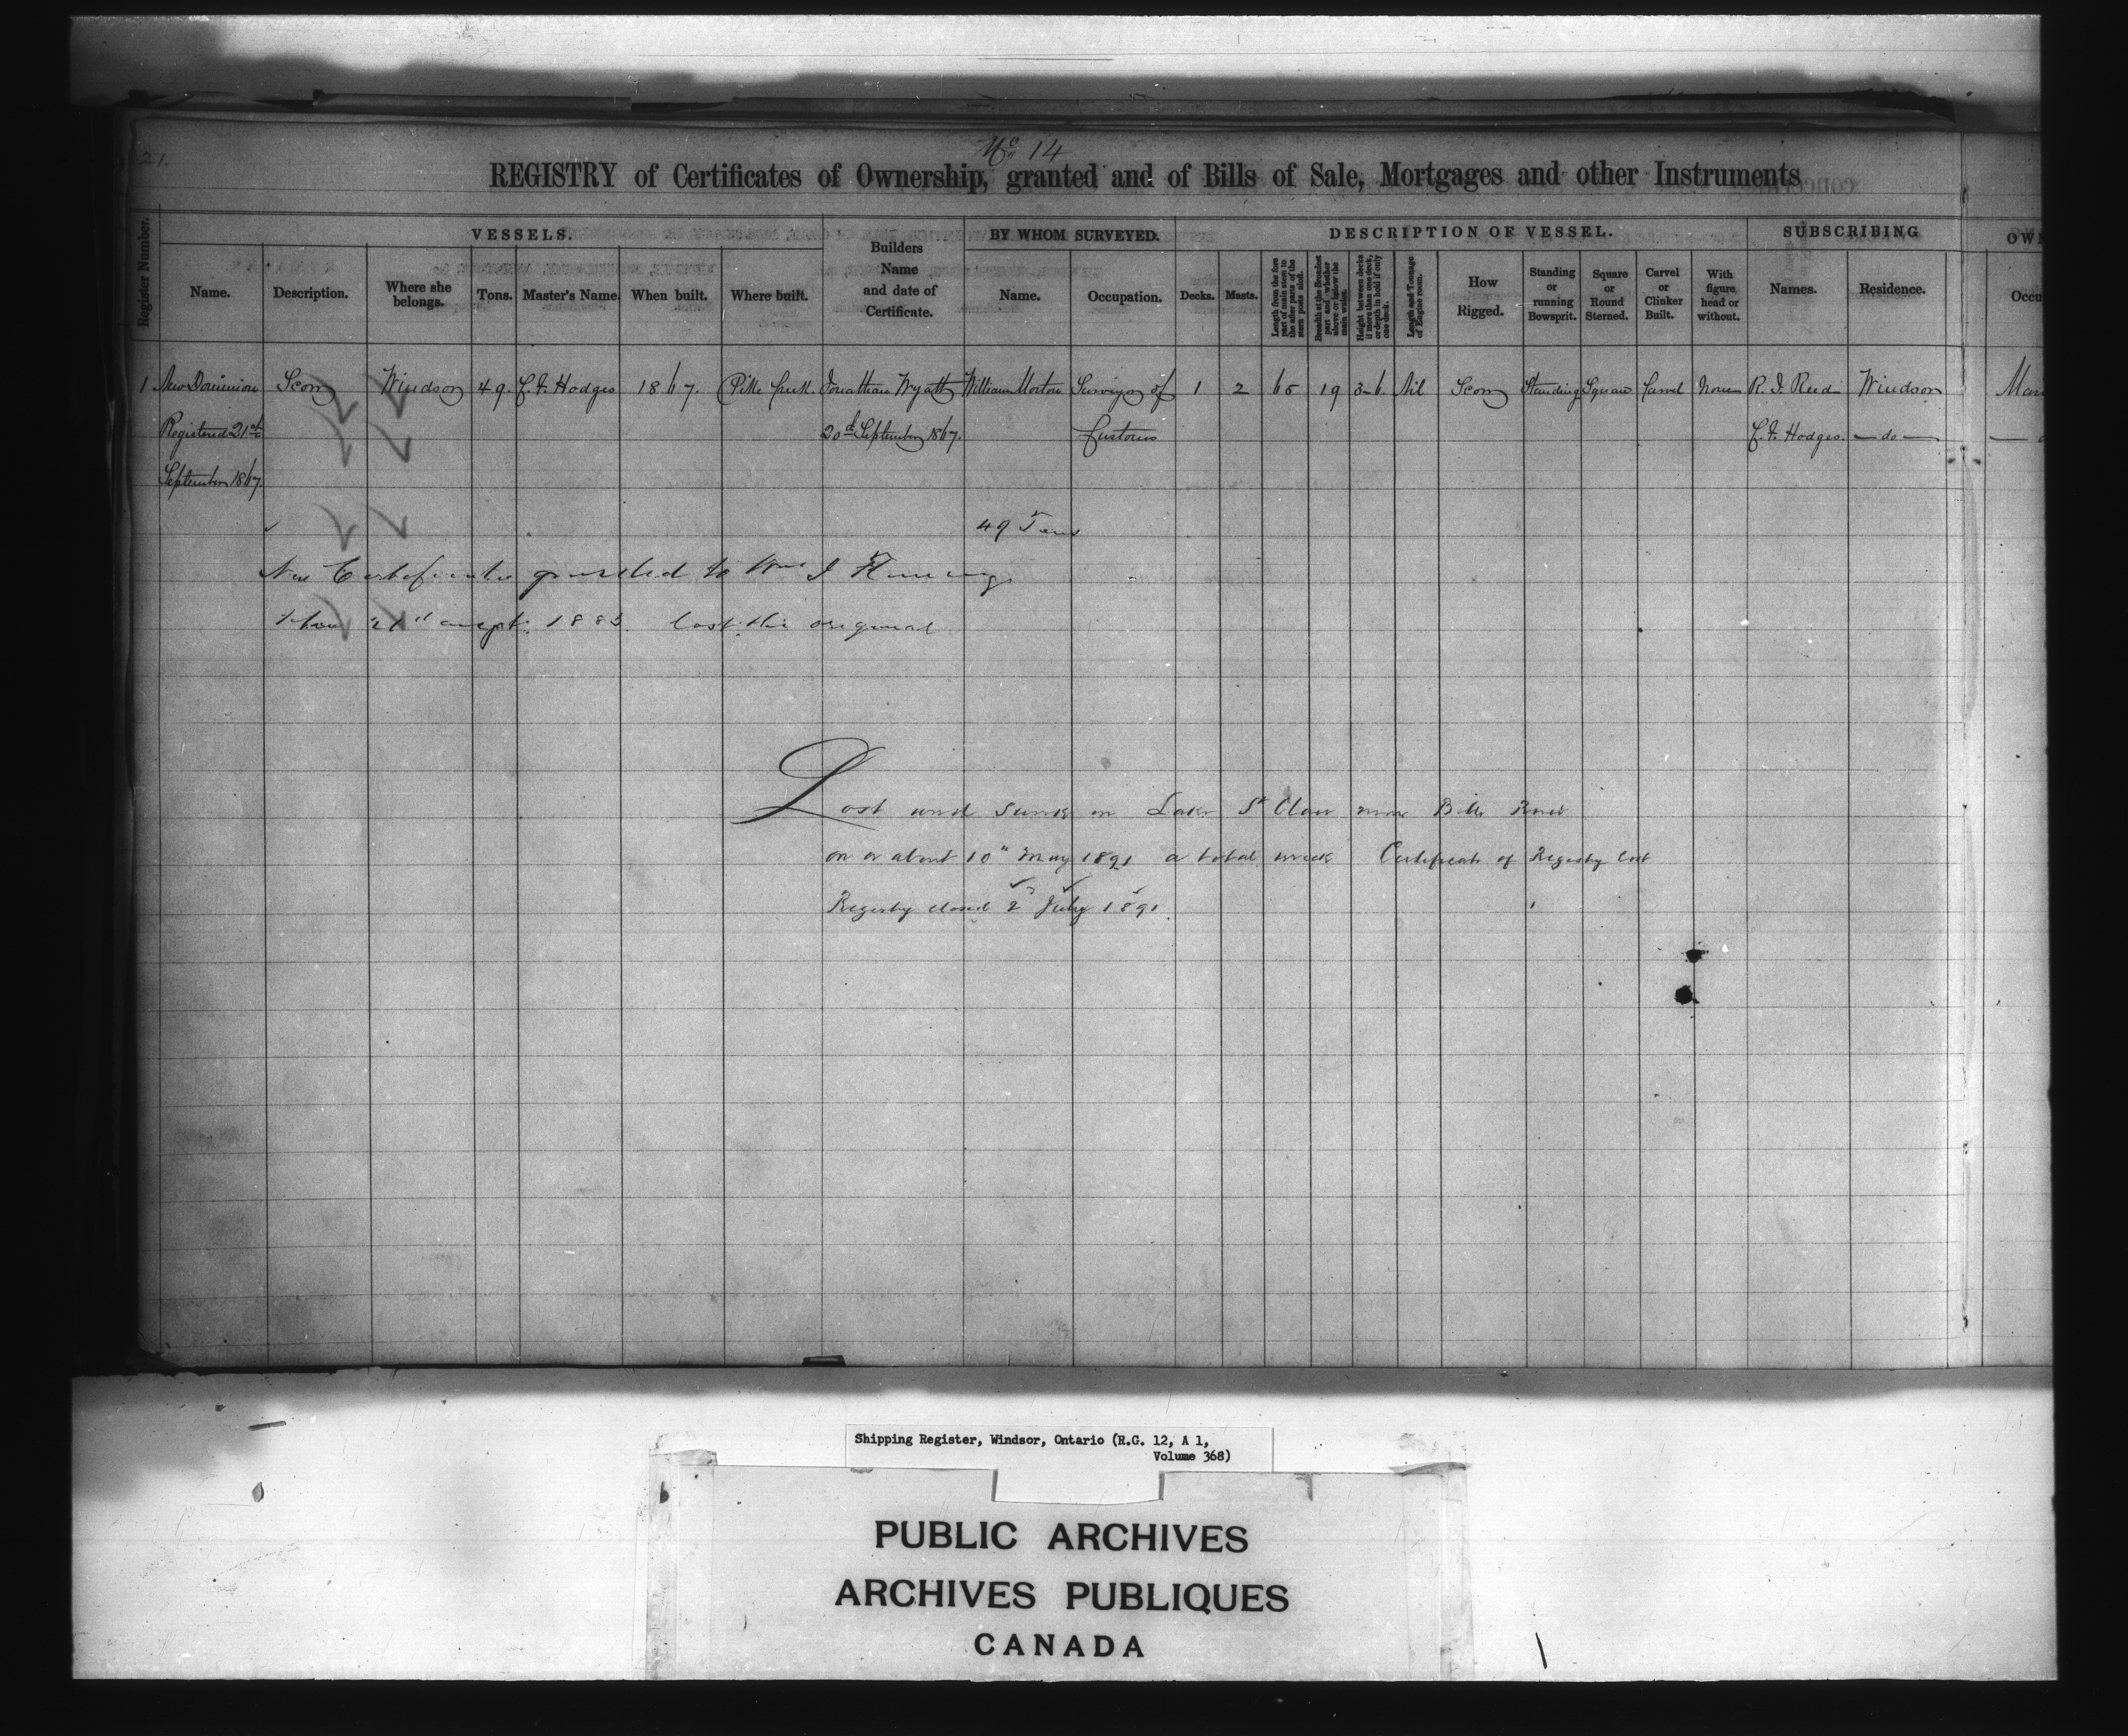 21.
No 14
REGISTRY of Certificates of Ownership, granted and of Bills of Sale, Mortgages and other Instruments
Register Number.
VESSELS.
Name.
Description.
Where she belongs.
Tons.
Master's Name.
When built.
Where built.
Builders Name and date of Certificate.
BY WHOM SURVEYED.
Name.
Occupation.
DESCRIPTION OF VESSEL.
Decks.
Masts.
Length from the fore part of main stem to the after part of the stern posts aloft.
Breadth at the Broadest part and whether above or below the main wales.
Height between decks if more than one deck, or depth in hold if only one deck.
Length and Tonnage of Engine room.
How Rigged.
Standing or running Bowsprit.
Square or Round Sterned.
Carvel or Clinker Built.
With figure head or without.
SUBSCRIBING
Names.
Residence.
OWN
Occu
1 New Dominion Scow Windsor 49. C. F. Hodges 1867. Pike Creek Jonathan Wyatt William Morton Surveyor of 1 2 65 19 3-6. Nil Scow Standing Square Carvel None R. J. Reed Windsor
Registered 21st 20th September 1867. Customs C. F. Hodges. — do —
September 1867.
49 Tons
New Certificate granted to Wm J Fleming
1883 lost the original
Lost and sunk in Lake St Clair near Belle River
on or about 10" May 1891 a total wreck Certificate of Registry lost
Registry closed 2" July 1891.
Shipping Register, Windsor, Ontario (R.G. 12, A 1,
Volume 368)
PUBLIC ARCHIVES
ARCHIVES PUBLIQUES
CANADA